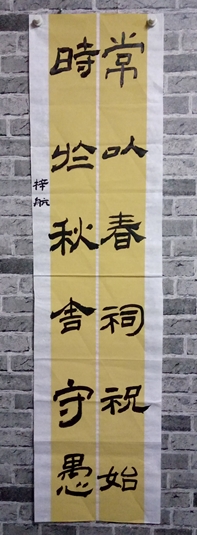 常以春祠祝始
時於秋舍守愚
梓航